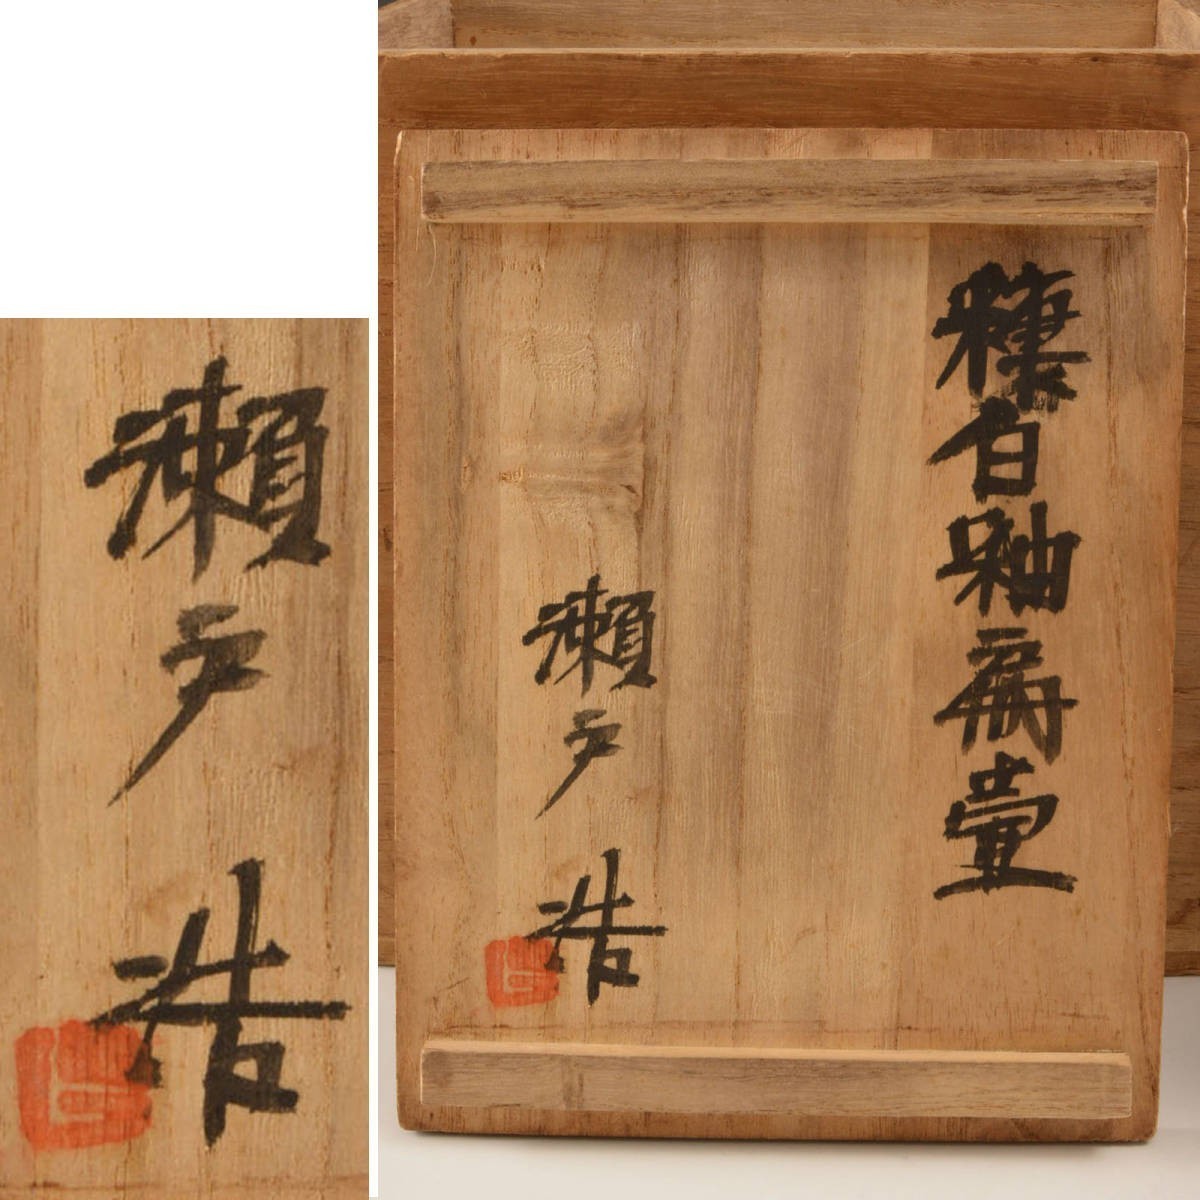 糠白釉扁壷
瀬戸浩
瀬戸浩